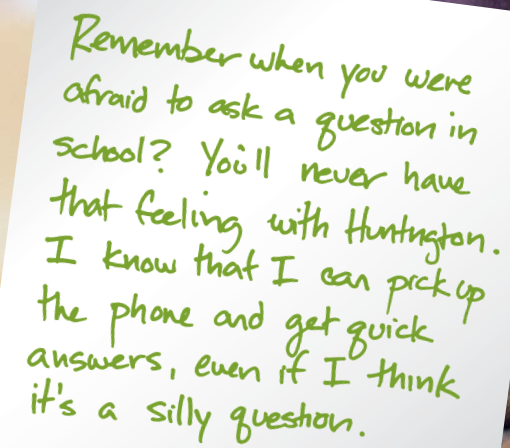 Remember when you were
afraid to ask a question in
school? You'll never have
that feeling with Huntington.
I know that I can pick up
the phone and get quick
answers, even if I think
it's a silly question.